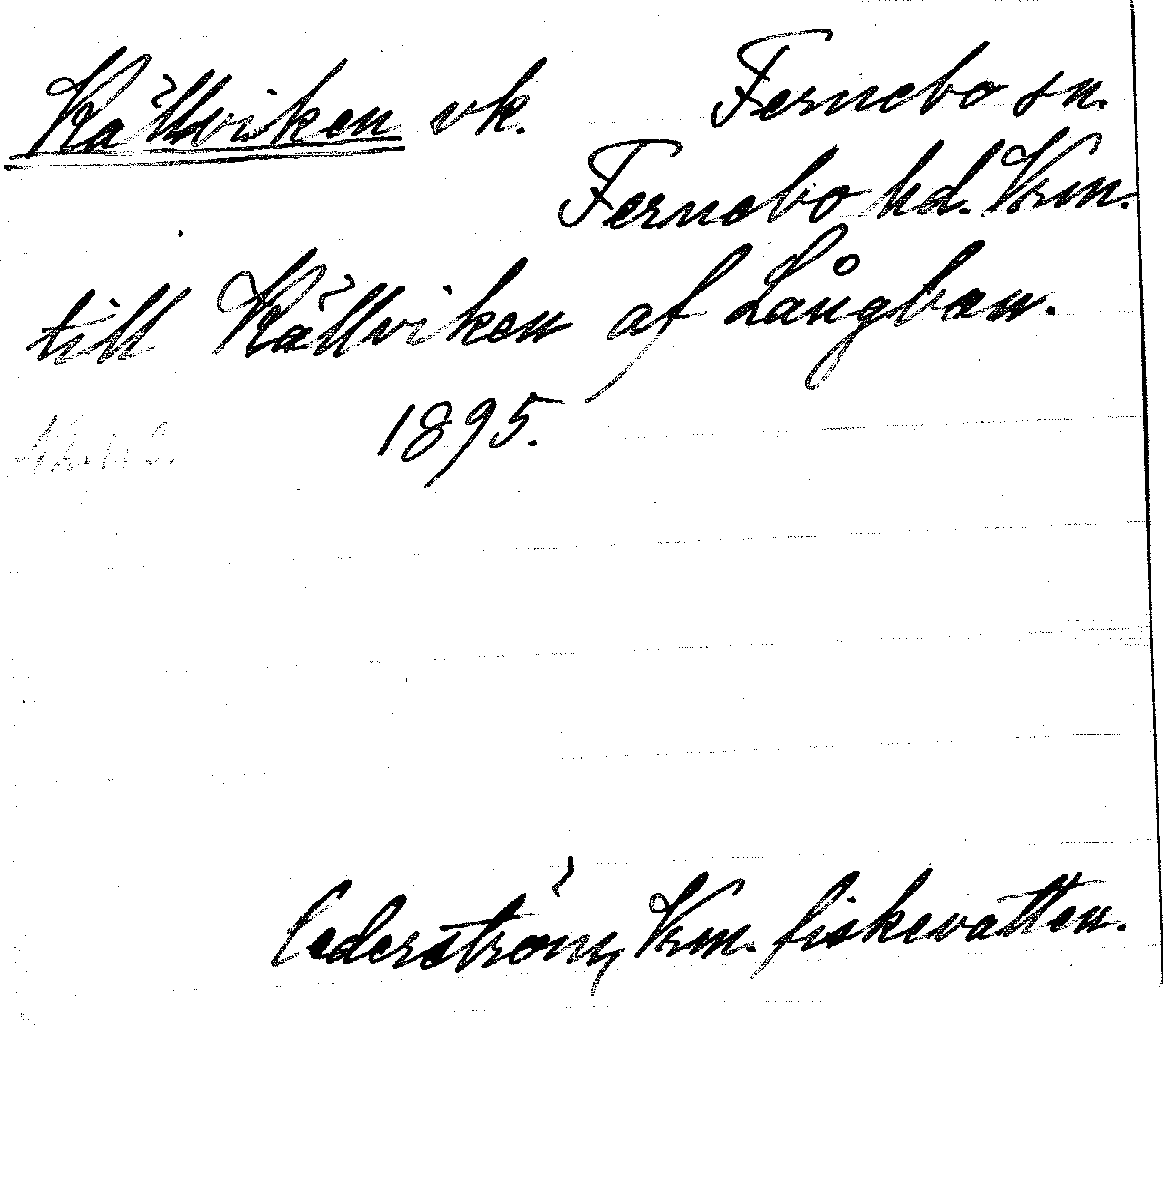 Källviken vk. Fernebo sn.
Fernebo hd. Vrm.
till Källviken af Långban.
1895.
Cederström, Vrm. fiskevatten.